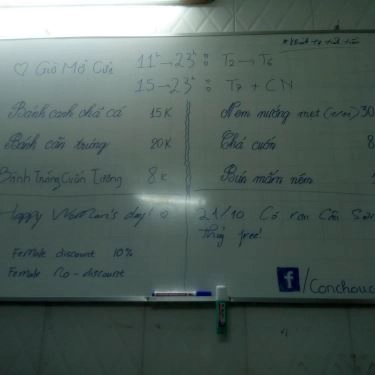 ♡ Giờ Mở Cửa 11h → 23h : T2 → T6
15 → 23h : T7 + CN
Bánh canh chả cá 15K
Bánh căn trứng 20K
Bánh Tráng Cuốn Tường 8K
Nem nướng met 30
Chả cuốn 8
Bún mắm nêm
Happy Woman's day! ♡
Female discount 10%
Female no-discount
21/10 Có rau Câu
Thúy free!
f/Conchouc